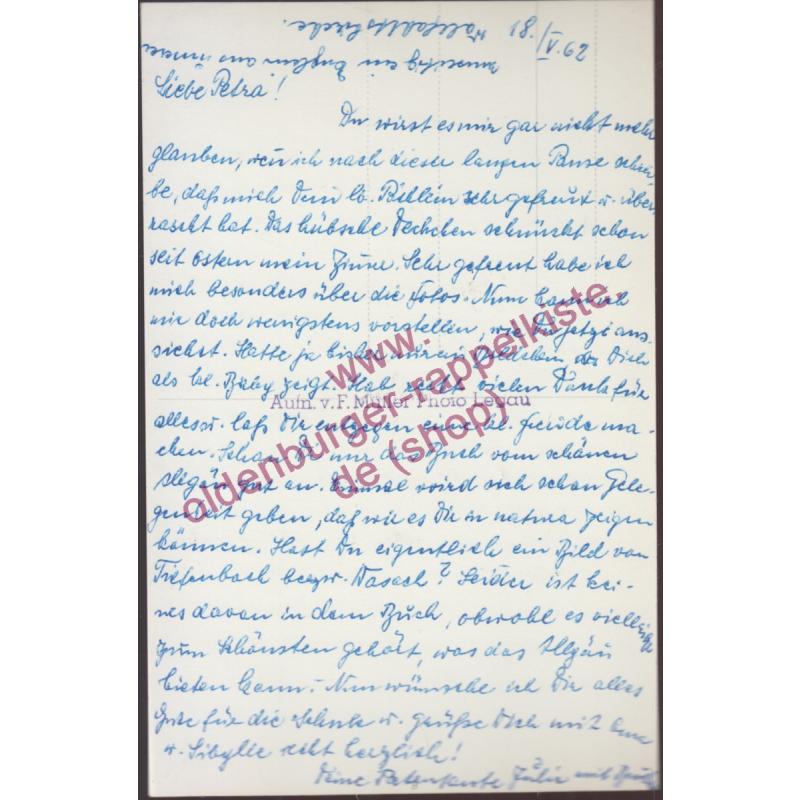 18./V. 62
Wallfahrtskirche.
umseitig ein Englein aus unserer
Liebe Petra!
Du wirst es mir gar nicht mehr
glauben, wen ich nach dieser langen Pause schrei-
be, daß mich Dein lb. Päcklein sehr gefreut u. über-
rascht hat. Das hübsche Deckchen schmückt schon
seit Ostern mein Zimmer. Sehr gefreut habe ich
mich besonders über die Fotos. Nun kann ich
mir doch wenigstens vorstellen, wie Du jetzt aus-
siehst. Hatte ja bisher nur ein Bildchen, das Dich
als kl. Baby zeigt. Hab recht vielen Dank für
alles u. laß Dir entgegen eine kl. Freude ma-
chen. Schau Dir nur das Buch vom schönen
Allgäu gut an. Einmal wird sich schon Gele-
genheit geben, daß wir es Dir in natura zeigen
können. Hast Du eigentlich ein Bild von
Tiefenbach bezw. Wasach? Leider ist kei-
nes davon in dem Buch, obwohl es vielleicht
zum Schönsten gehört, was das Allgäu
bieten kann. – Nun wünsche ich Dir alles
Gute für die Schule u. grüße Dich mit
u. Sibylle recht herzlich!
Deine Patentante Julie mit
Aufn. v. F. Müller Photo Legau
www.
oldenburger-rappelkiste.
de (shop)